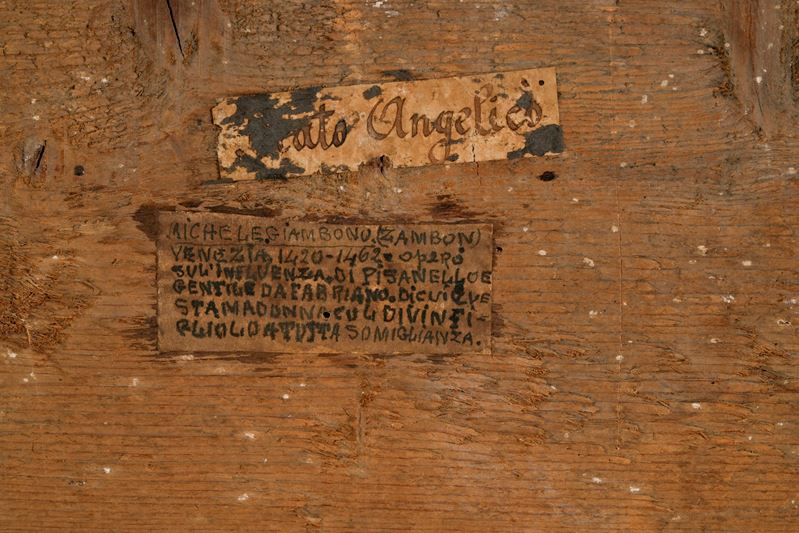 ato Angelico
MICHELE.GIAMBONO.(ZAMBON)
VENEZIA, 1420-1462. operò
SUL'INFLUENZA.DI PISANELLO E
GENTILE DA FABRIANO. Di cui QUE
STA MADONNA COL DIVIN FI-
GLIOLO A TUTTA SOMIGLIANZA.